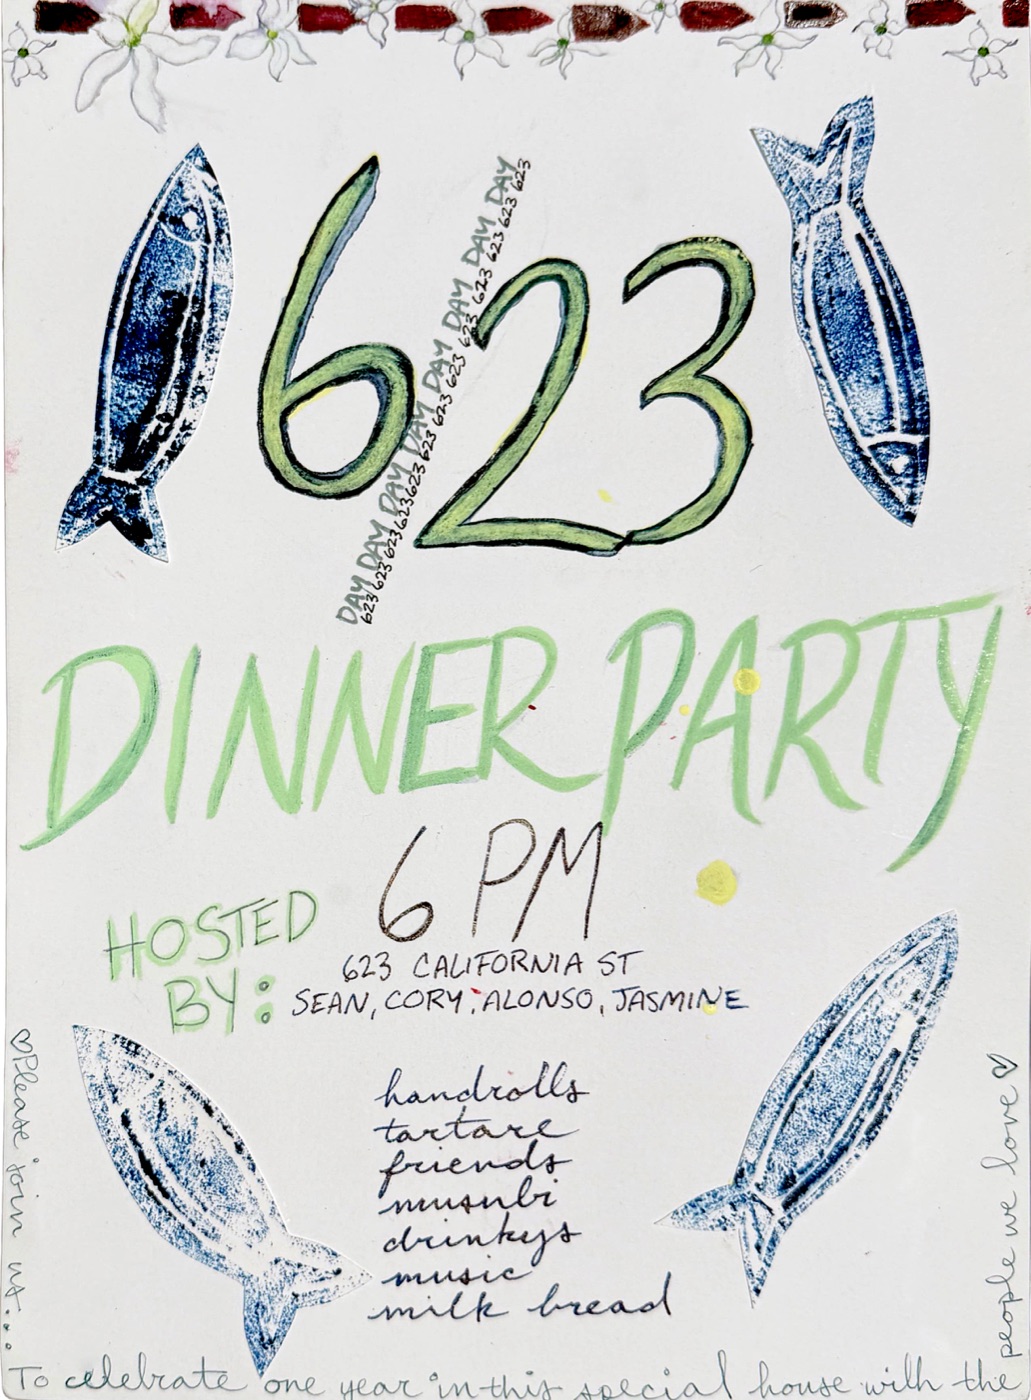 623
DAY DAY DAY DAY DAY DAY DAY DAY
623 623 623 623 623 623 623 623 623 623 623 623 623
DINNER PARTY
6 PM
HOSTED
BY:
623 CALIFORNIA ST
SEAN, CORY, ALONSO, JASMINE
handrolls
tartare
friends
musubi
drinkys
music
milk bread
♡Please join us...
To celebrate one year in this special house with the
people we love♡